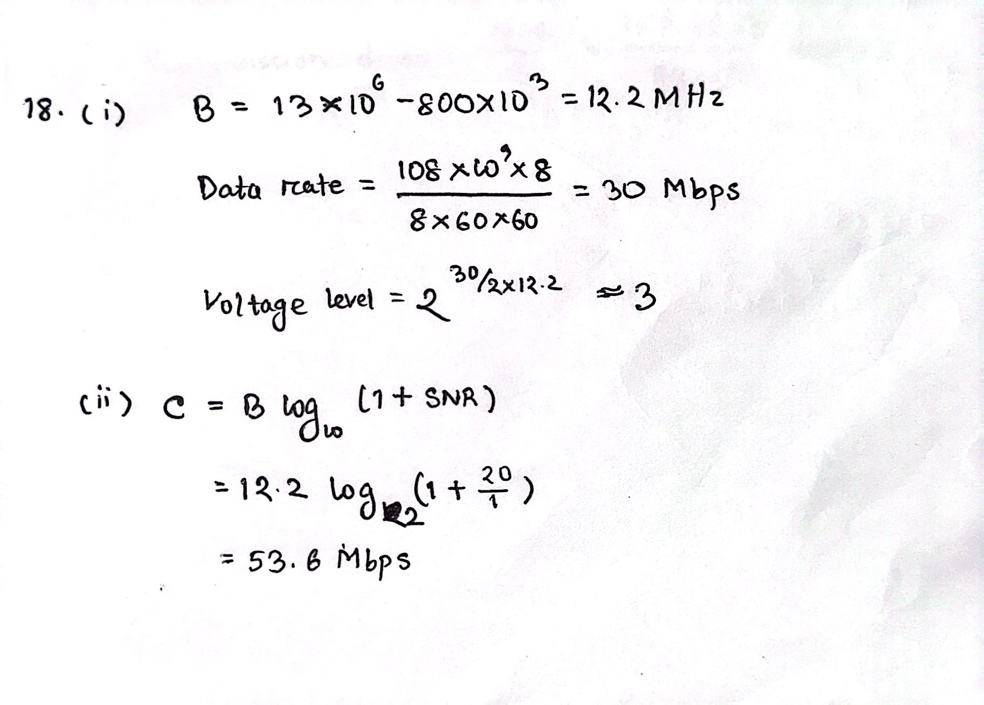 18. (i) B = 13×10⁶ - 800×10³ = 12.2 MHz
Data rate = 108 × 10⁹ × 8 / 8×60×60 = 30 Mbps
Voltage level = 2^30/2×12.2 ≈ 3
(ii) C = B log₁₀ (1 + SNR)
= 12.2 log₂ (1 + 20/1)
= 53.6 Mbps